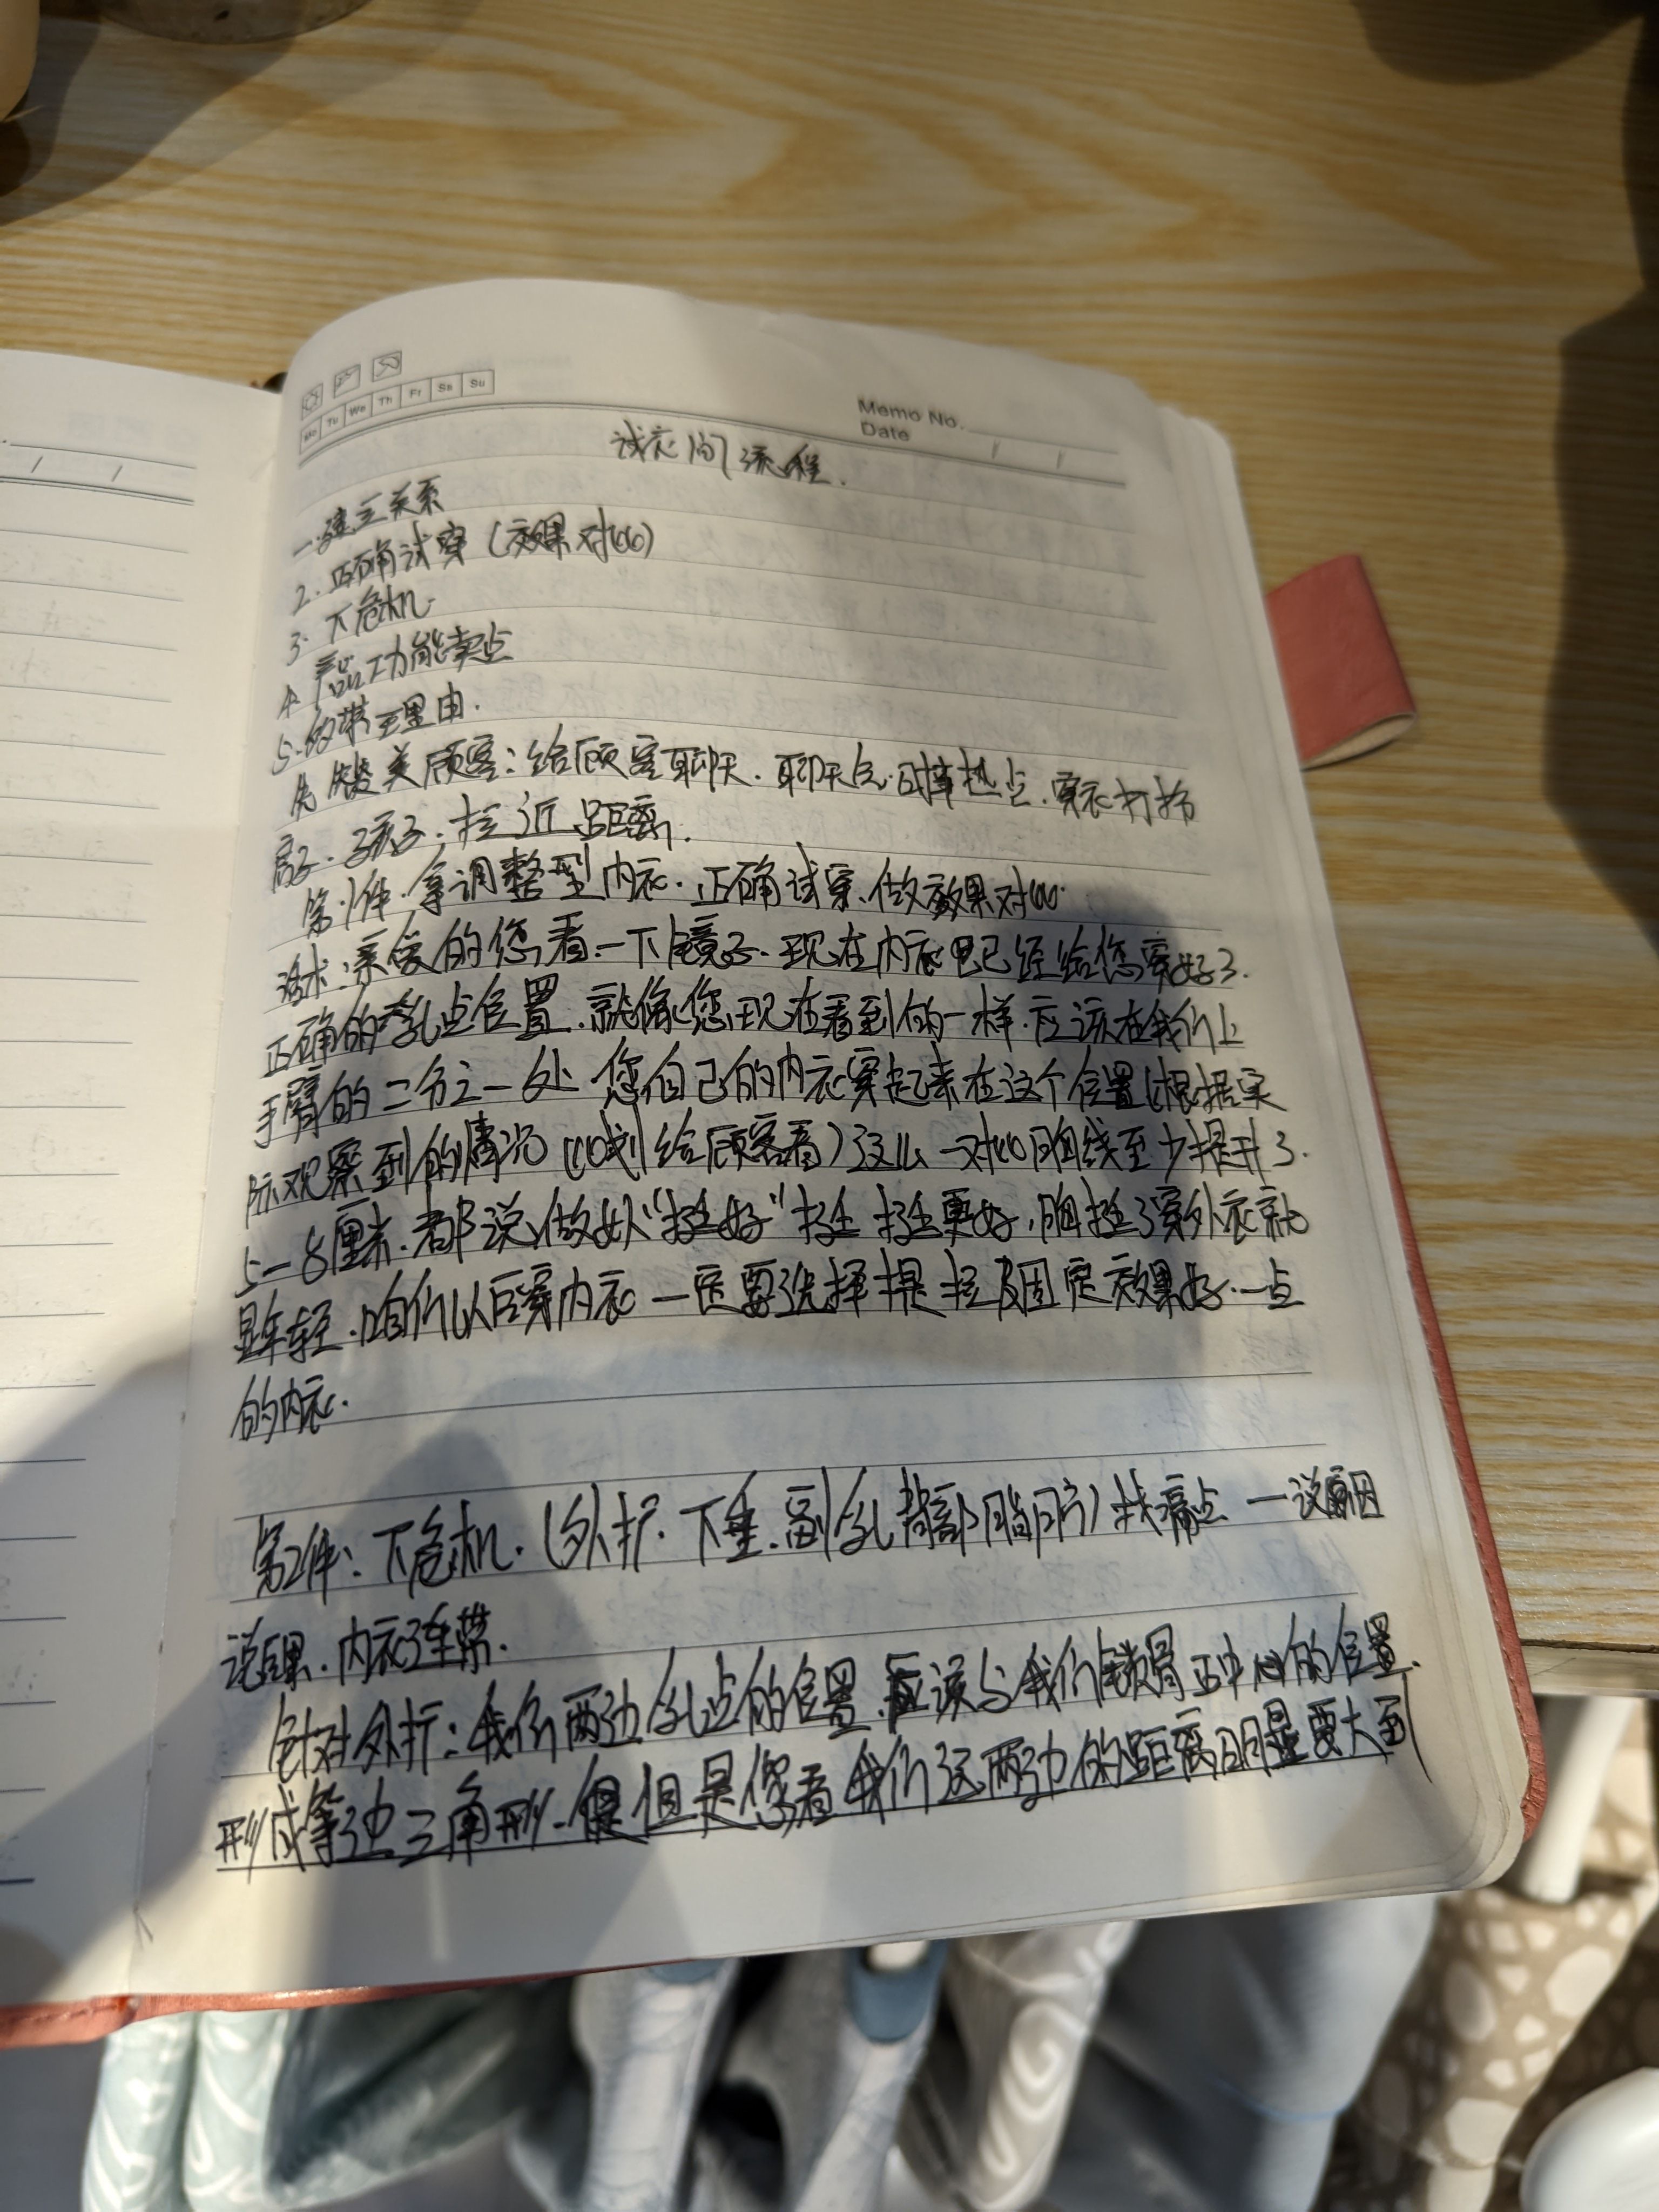 Mo Tu We Th Fr Sa Su
Memo No.
Date / /
试衣间流程.
一.建立关系
2.正确试穿(效果对比)
3.下危机.
4.产品功能卖点
5.的带理由.
先赞美顾客:给顾客聊天.聊天气.时事热点.穿衣打扮
房子.孩子.拉近距离.
第1件.拿调整型内衣.正确试穿.做效果对比.
话术:亲爱的您看一下镜子.现在内衣已经给您穿好了.
正确的乳点位置.就像您现在看到的一样.应该在我们上
手臂的二分之一处.您自己的内衣穿起来在这个位置(根据实
际观察到的情况比划给顾客看)这么一对比胸线至少提升了.
5-8厘米.都说做女人"挺好"挺挺更好,胸挺了穿外衣就
显年轻.咱们以后穿内衣一定要选择提拉及固定效果好一点
的内衣.
第2件:下危机.(外扩.下垂.副乳背部脂肪)找痛点一说原因
说后果.内衣连带.
针对外扩:我们两边乳点的位置.应该与我们锁骨正中心的位置.
形成等边三角形.但是您看我们这两边的距离明显要大到